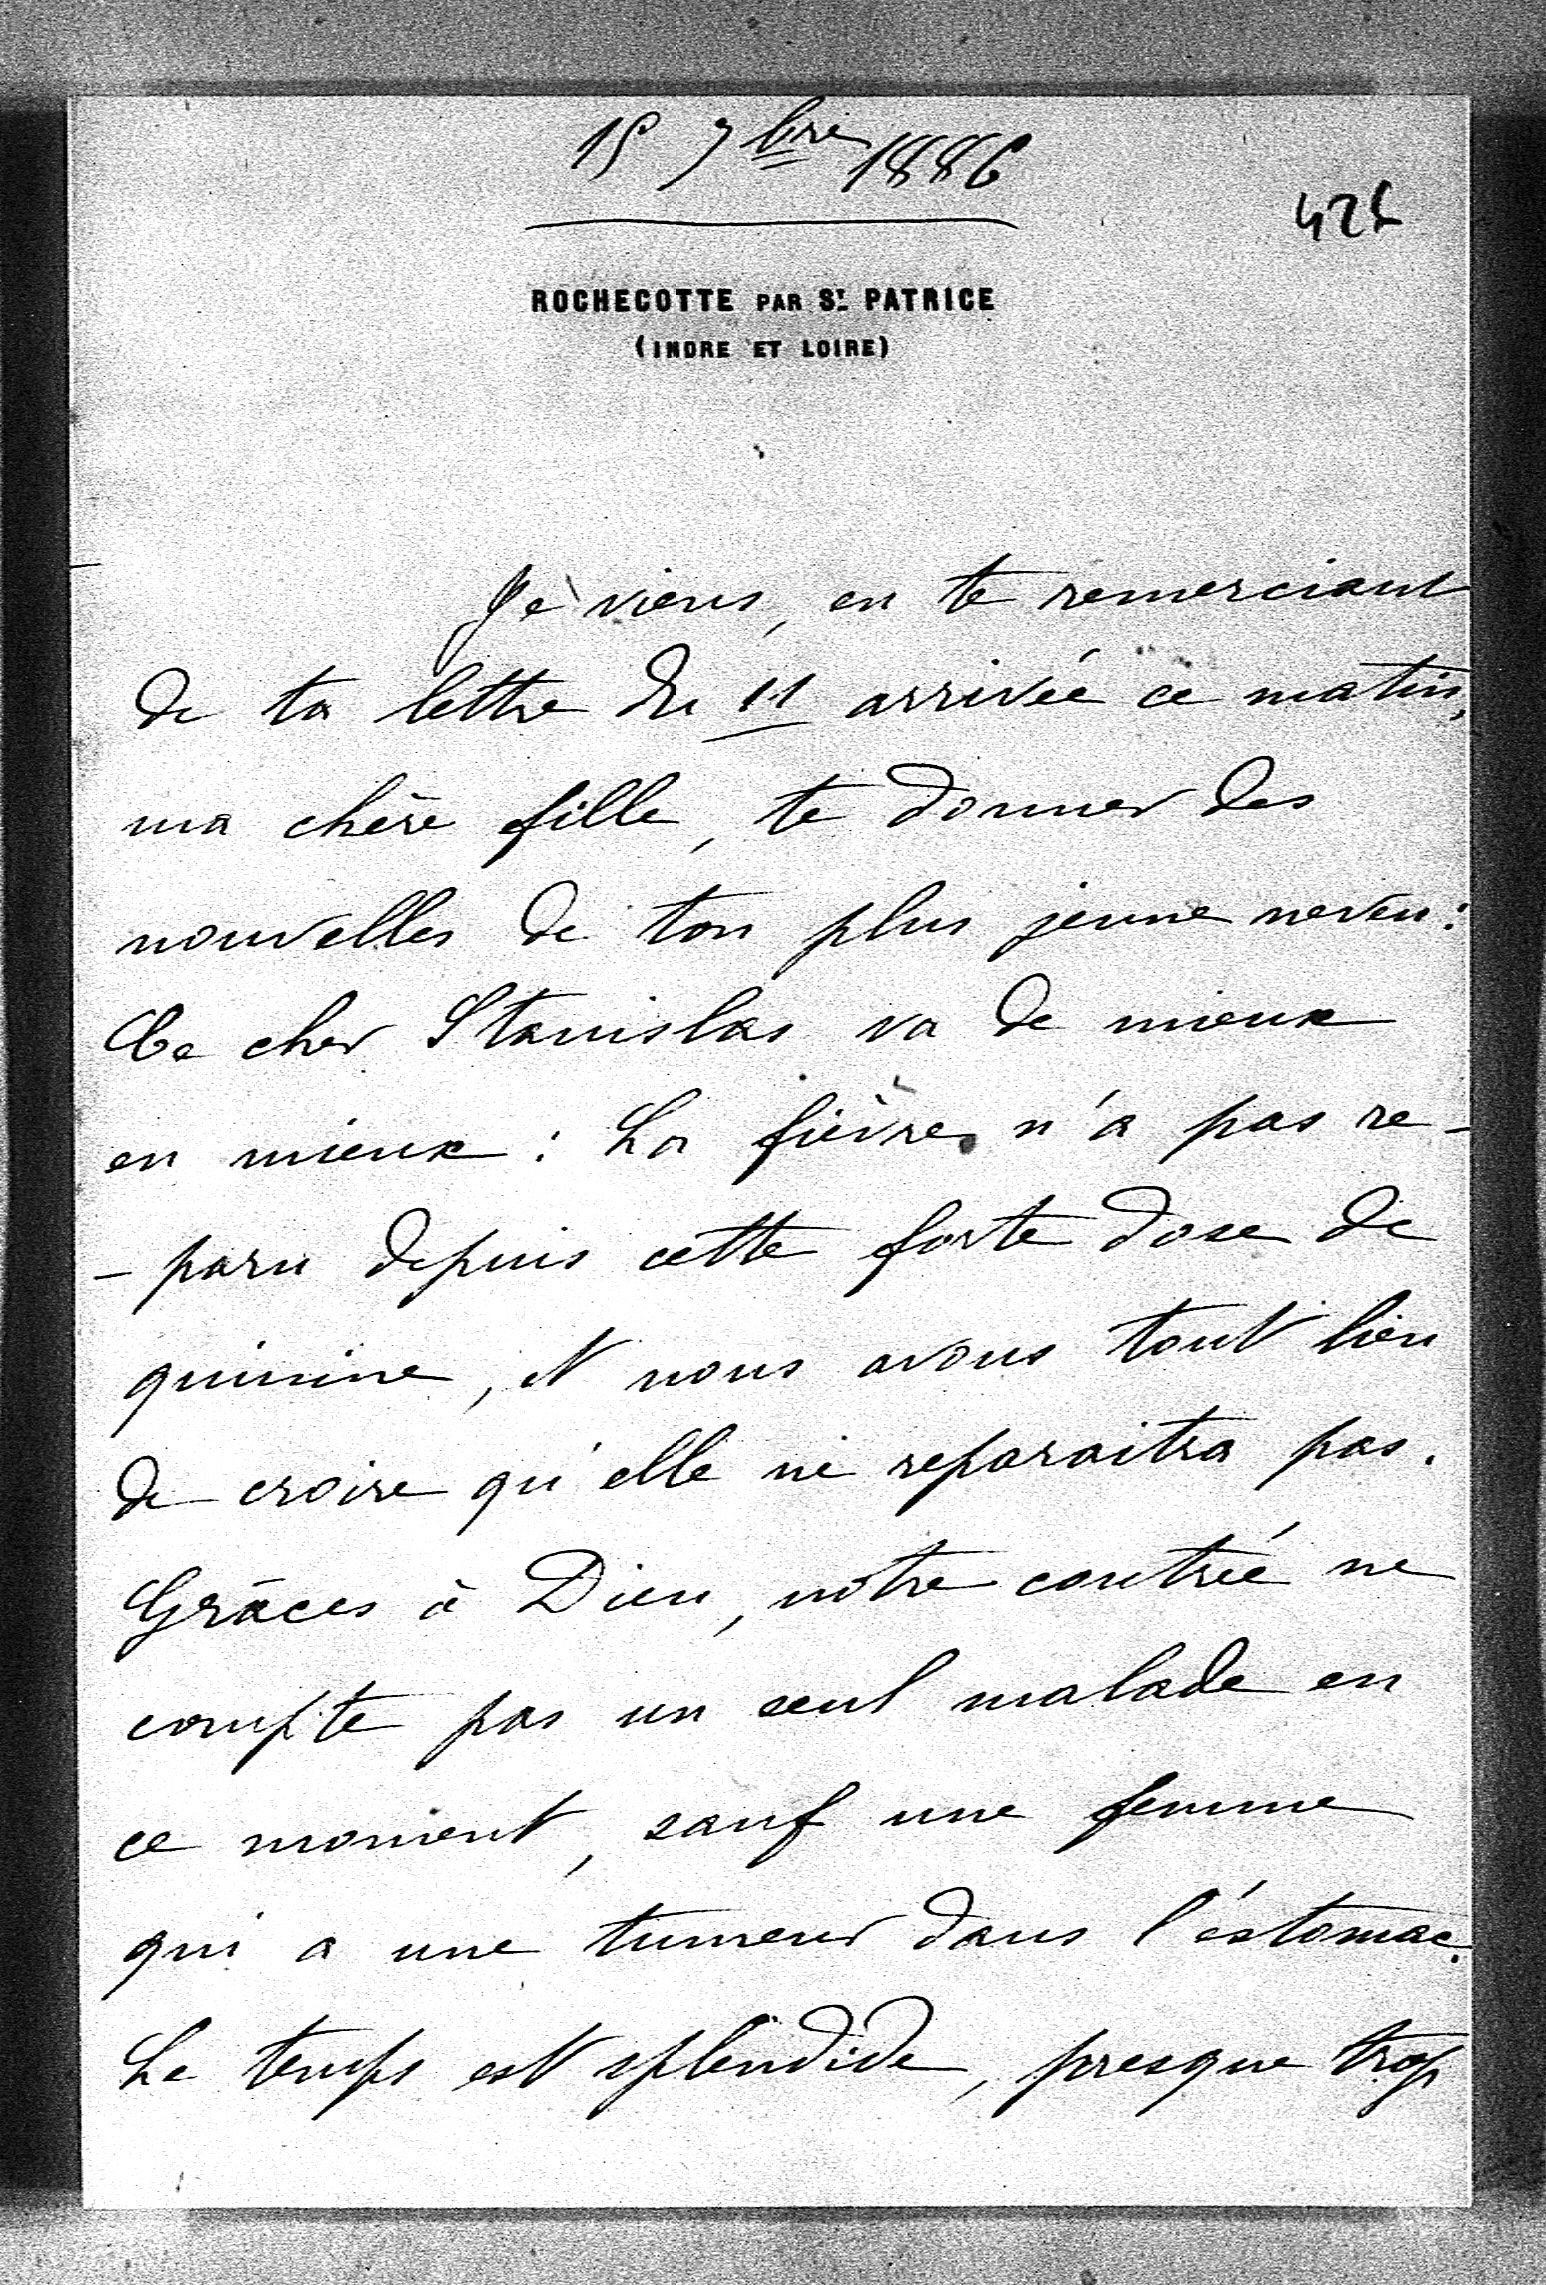 15 7bre 1886
ROCHECOTTE PAR ST. PATRICE
(INDRE ET LOIRE)
Je viens, en te remerciant
de ta lettre du 11 arrivée ce matin,
ma chère fille, te donner des
nouvelles de ton plus jeune neveu:
Ce cher Stanislas va de mieux
en mieux: La fièvre n'a pas re-
-paru depuis cette forte dose de
quinine, et nous avons tout lieu
de croire qu'elle ne reparaitra pas.
Grâces à Dieu, notre contrée ne
compte pas un seul malade en
ce moment, sauf une femme
qui a une tumeur dans l'éstomac.
Le temps est splendide, presque trop